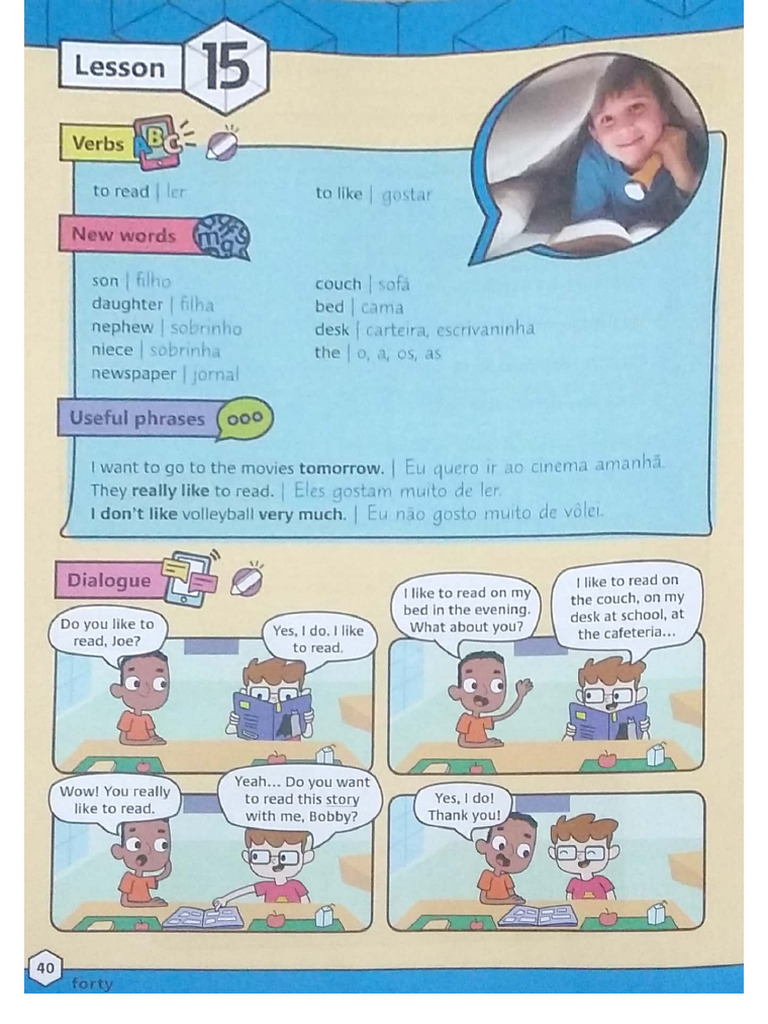 Lesson 15
Verbs ABC
to read | ler
to like | gostar
New words
son | filho
daughter | filha
nephew | sobrinho
niece | sobrinha
newspaper | jornal
couch | sofá
bed | cama
desk | carteira, escrivaninha
the | o, a, os, as
Useful phrases
I want to go to the movies tomorrow. | Eu quero ir ao cinema amanhã.
They really like to read. | Eles gostam muito de ler.
I don't like volleyball very much. | Eu não gosto muito de vôlei.
Dialogue
Do you like to
read, Joe?
Yes, I do. I like
to read.
I like to read on my
bed in the evening.
What about you?
I like to read on
the couch, on my
desk at school, at
the cafeteria...
Wow! You really
like to read.
Yeah... Do you want
to read this story
with me, Bobby?
Yes, I do!
Thank you!
40
forty